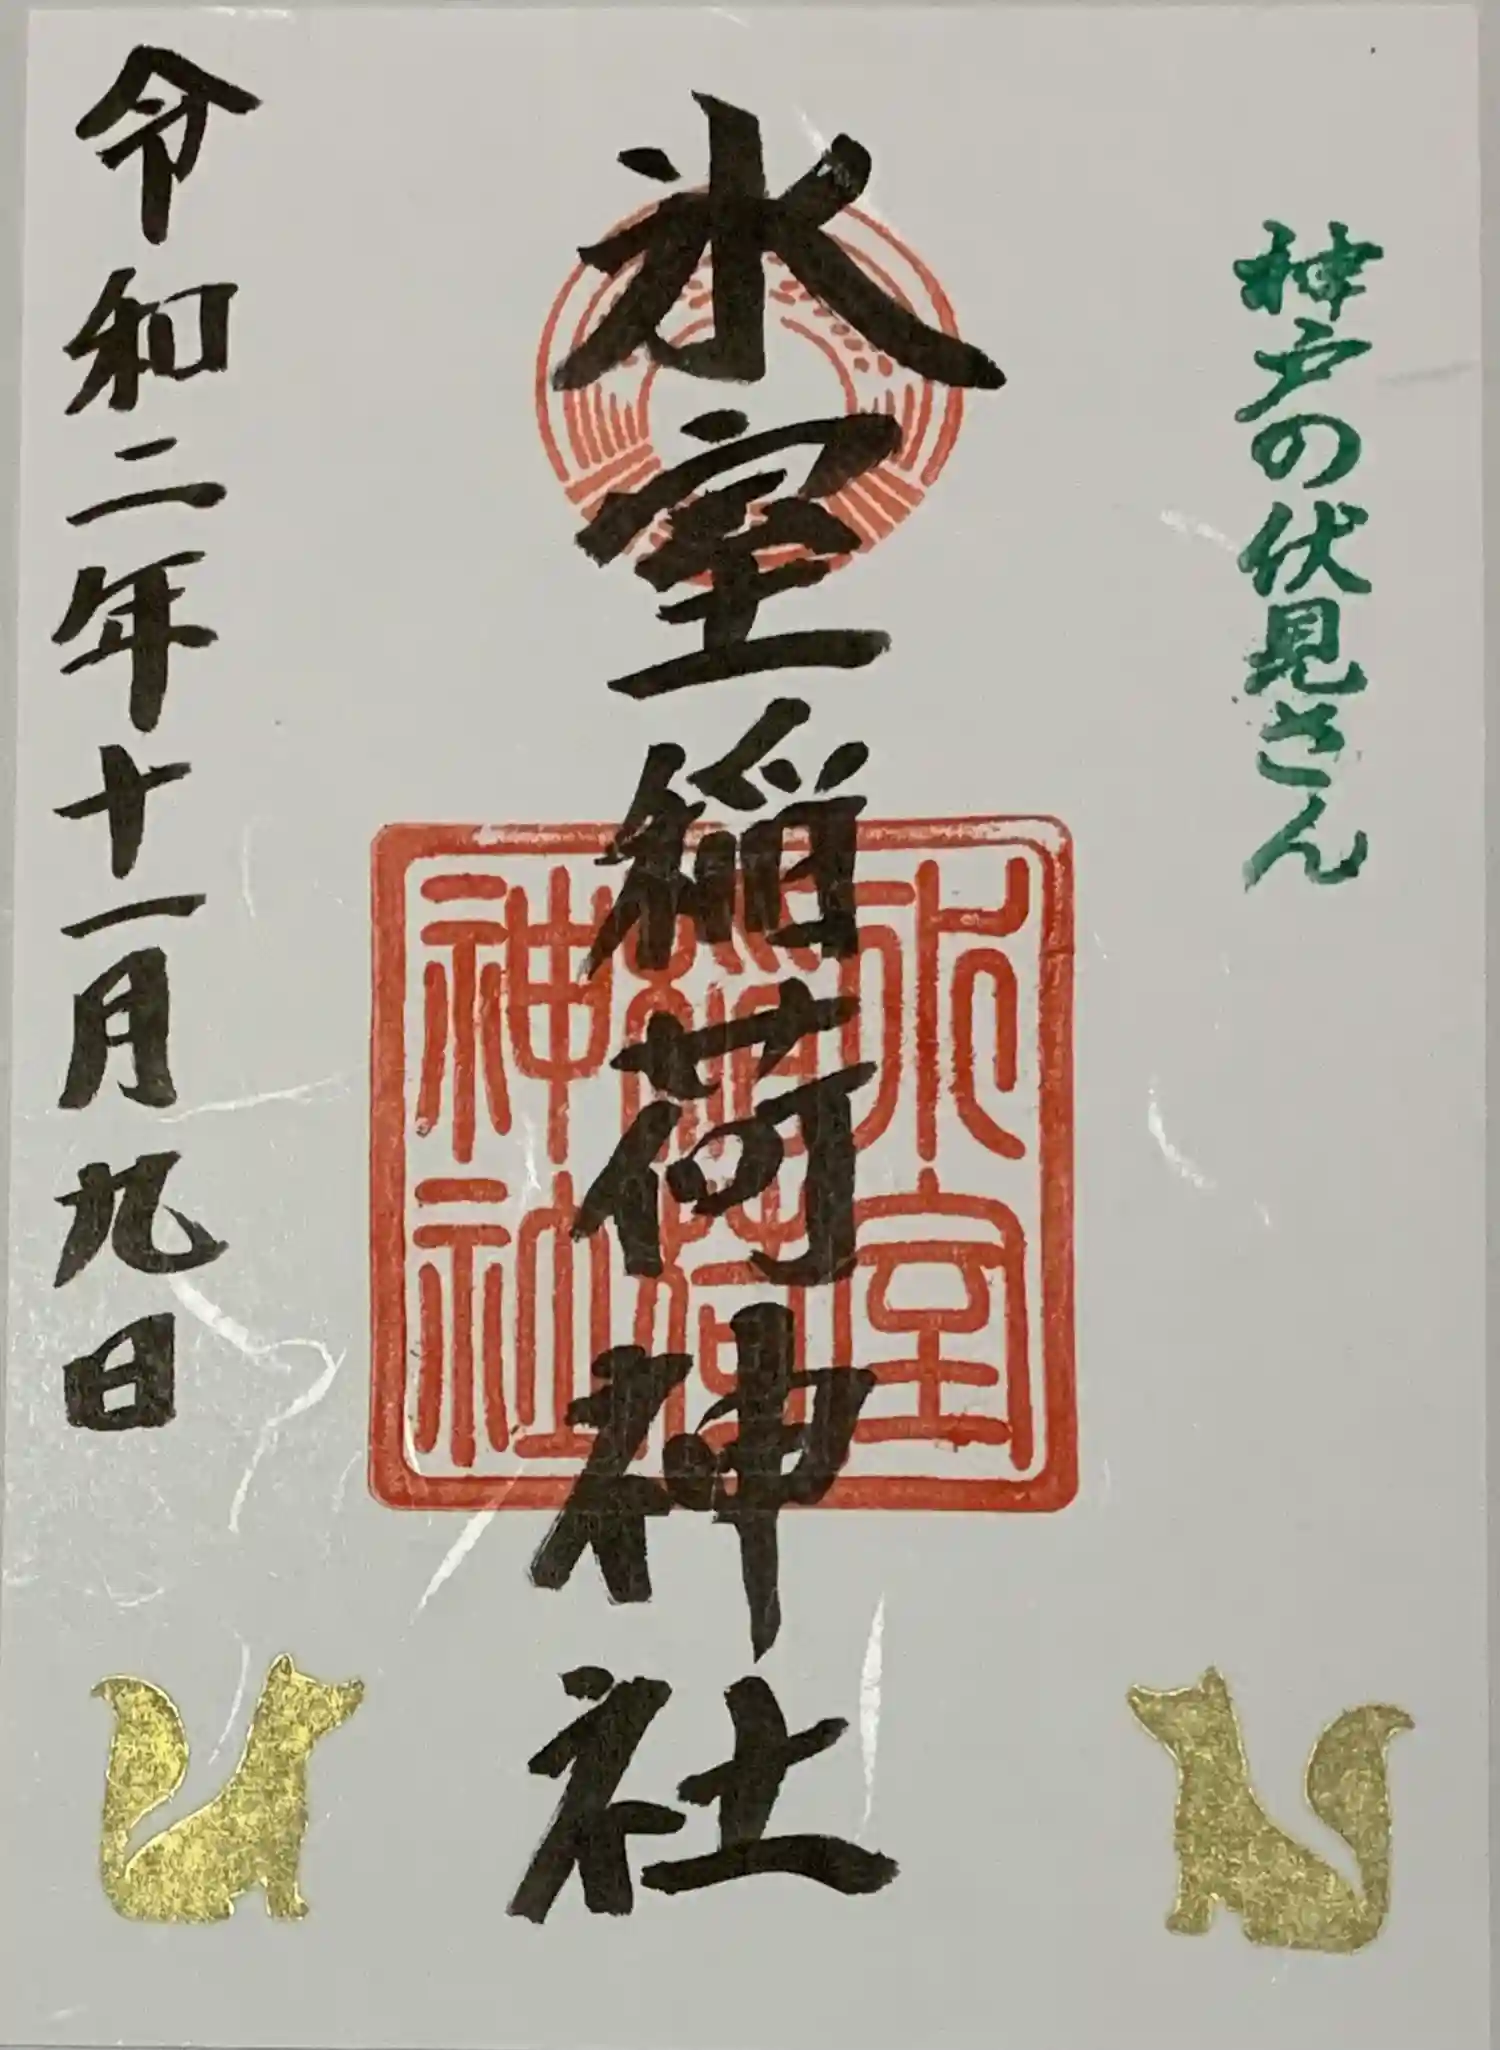 神戸の伏見さん
氷室稲荷神社
氷室
稲荷
神社
令和二年十一月九日